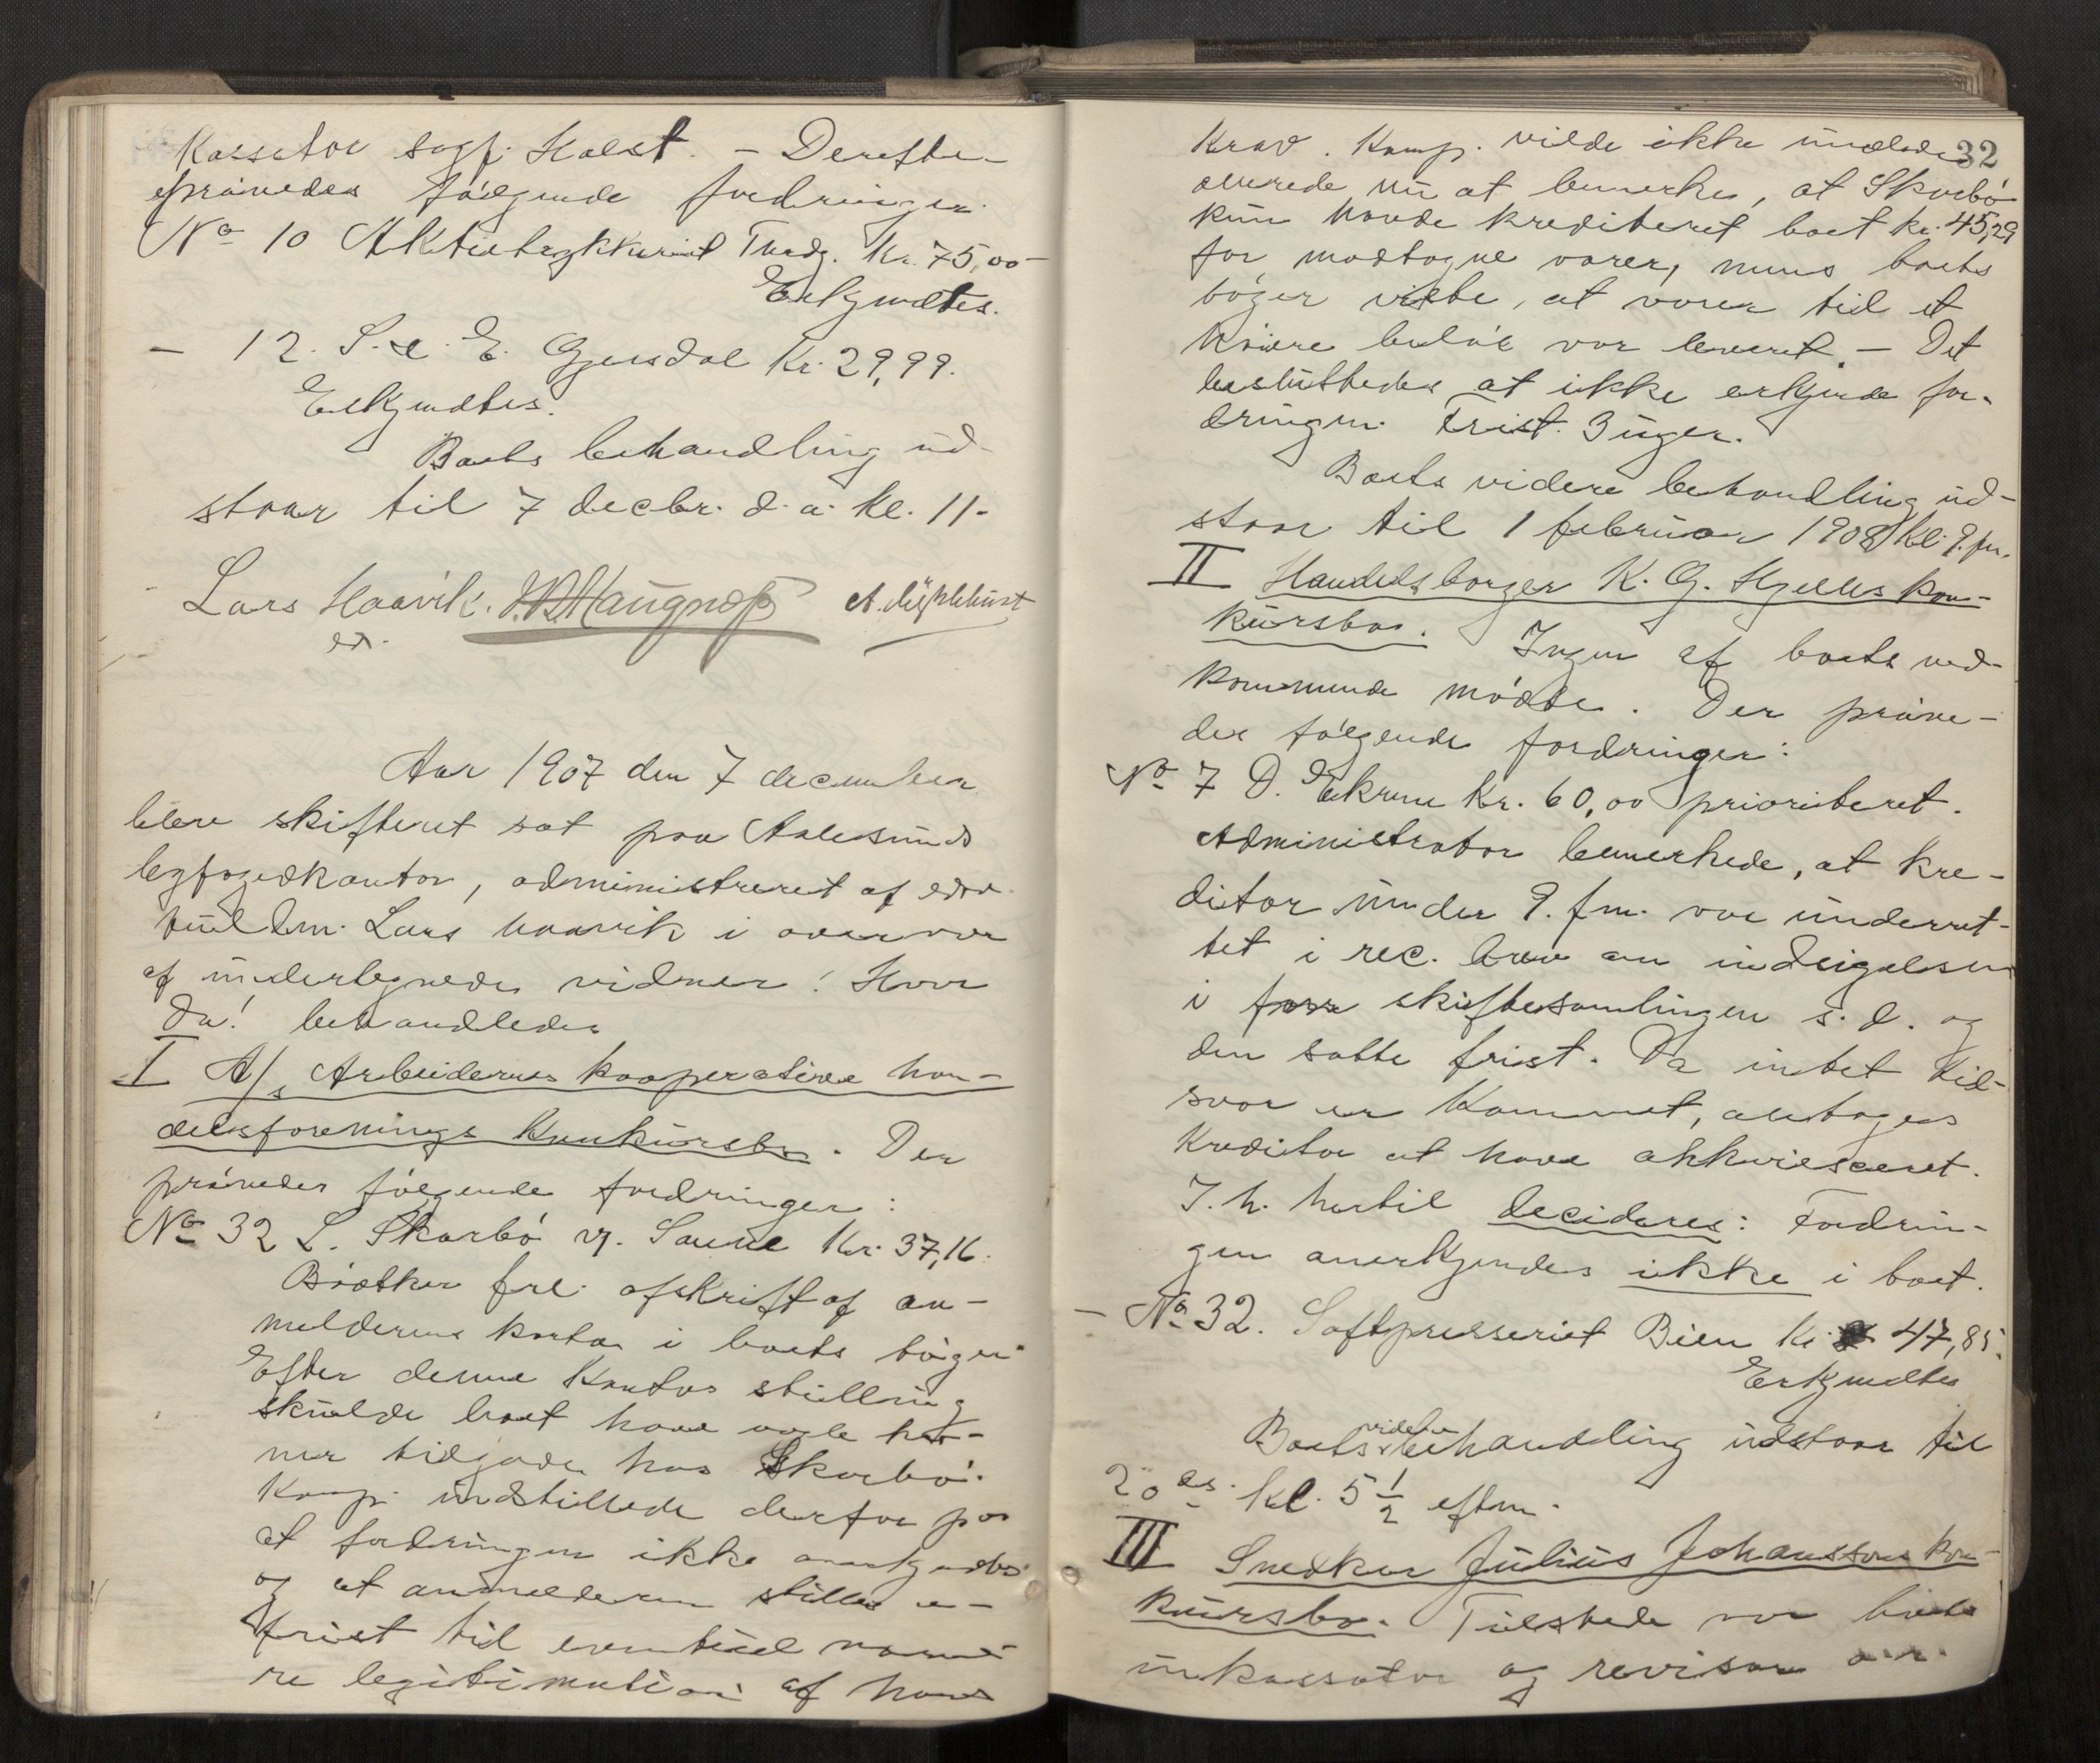 Kassator sagf. Holst. – Derefter
prøvedes følgende fordringer.
No 10 Aktietrykkeriet Trdg. Kr. 75,00
Erkjendtes.
– 12. S. & E. Gjersdal Kr. 29,99.
Erkjendtes.
Boets behandling ud-
staar til 7 decbr. d. a. kl. 11.
Lars Haavik.
ed.
Aar 1907 den 7 december
blev skifteret sat paa Aalesunds
byfogedkontor, administreret af edsv.
fuldm. Lars Haavik i overvær
af undertegnede vidner. Hvor
da! behandledes
I A/s Arbeidernes kooperative han-
delsforenings konkursbo. Der
prøvedes følgende fordringer:
No 32 L. Skarbø Kr. 37,16.
Bødtker frl. afskrift af an-
melderens konto i boets bøger.
Efter denne kontos stilling
skulde boet have nogle kro-
ner tilgode hos Skarbø.
Komp. indstillede derfor paa
at fordringen ikke anerkjendtes
og at anmelderen stilles en
frist til eventuel nærme-
re legitimation af hans
32
Krav. Komp. vilde ikke undlade
allerede nu at bemerke, at Skarbø
kun havde krediteret boet kr. 45,29
for modtagne varer, mens boets
bøger viste, at varer til et
høiere beløb var leveret. – Det
besluttedes at ikke erkjende for-
dringen. Frist 3 uger.
Boets videre behandling ud-
staar til 1 februar 1908 kl. 9. fm.
II Handelsborger K. G. Hjelles kon-
kursbo. Ingen af boets ved-
kommende mødte. Der prøve-
des følgende fordringer:
No 7 O. Ekrem Kr. 60,00 prioriteret.
Administrator bemerkede, at kre-
ditor under 9. f.m. var underret-
tet i rec. brev om indsigelsen
i skiftesamlingen s. d. og
den satte frist. Da intet til-
svar er kommet, antages
Kreditor at have akkviesceret.
I. h. hertil decideres: Fordrin-
gen anerkjendes ikke i boet.
– No 32. Saftpresseriet Bien Kr. 47,85.
Erkjendtes
Boets videre behandling udstaar til
20 ds. kl. 5 1/2 eftm.
III Snedker Julius Johanssons kon-
kursbo. Tilstede var boets
inkassator og revisor